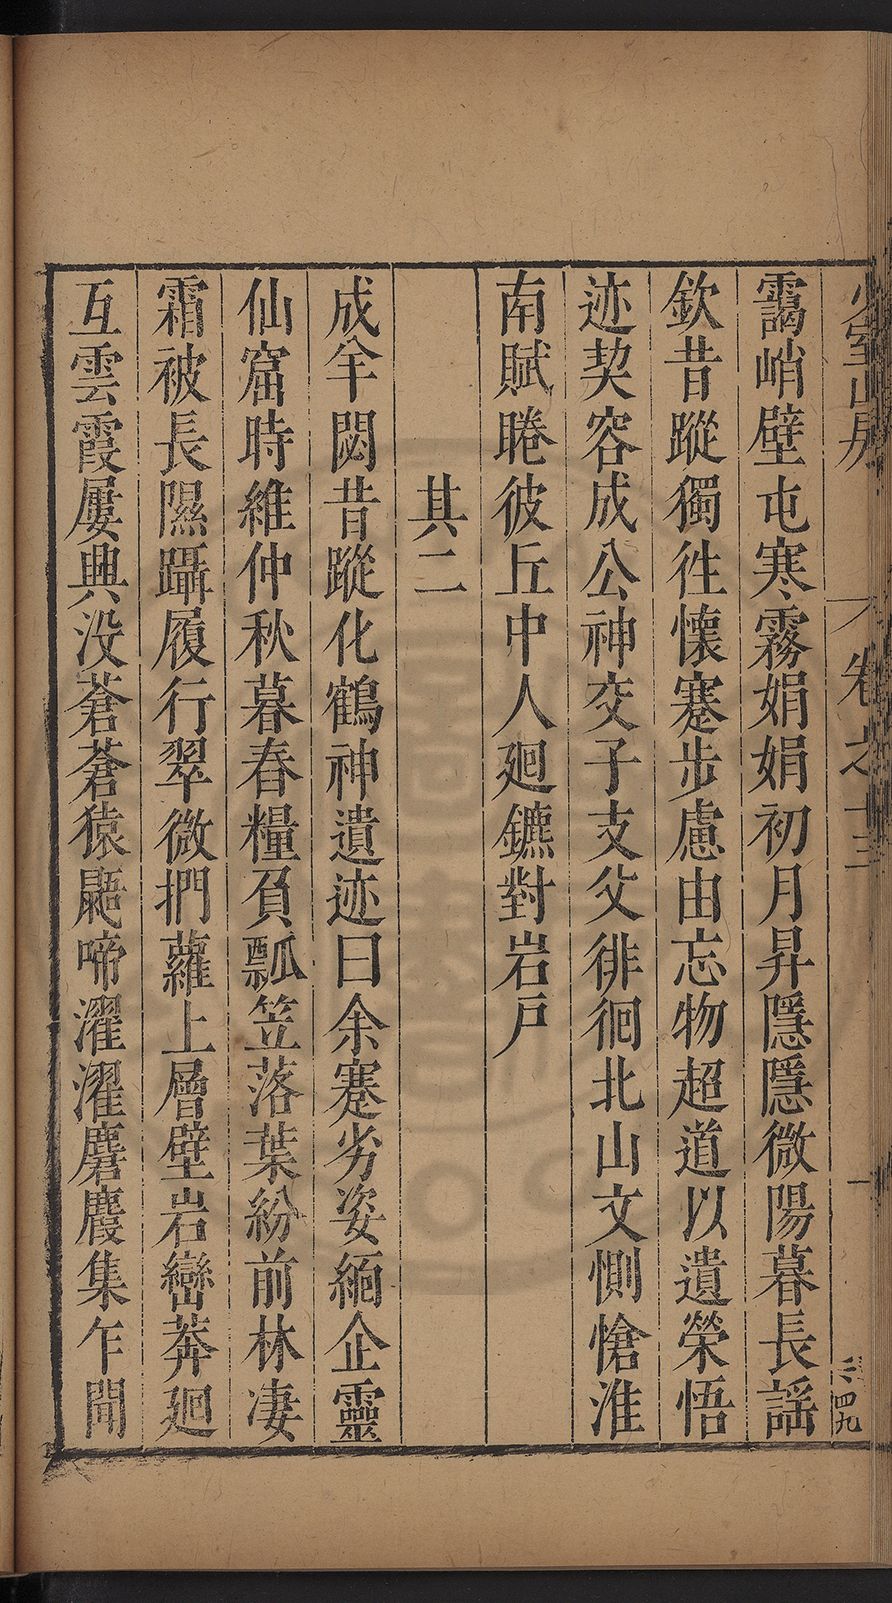 少室山房
卷之十三
靄峭壁屯寒霧娟娟初月昇隱隱微陽暮長謡
欽昔蹤獨徃懷蹇步慮由忘物超道以遺榮悟
迹契容成公神交子支父徘徊北山文惻愴淮
南賦睠彼丘中人廻鑣對岩戸
其二
成羊閟昔蹤化鶴神遺迹曰余蹇劣姿緬企靈
仙窟時維仲秋暮舂糧負瓢笠落葉紛前林凄
霜被長隰躡履行翠微捫蘿上層壁岩巒莽廻
互雲霞屢興没蒼蒼猿鼯啼濯濯麏麚集乍聞